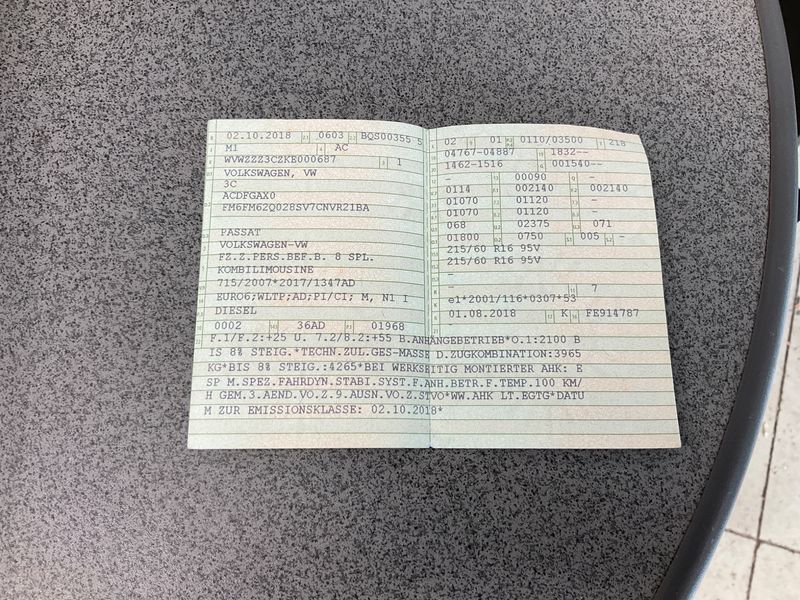 02.10.2018 0603 BQS00355 5
M1 AC
WVWZZZ3CZKE000687 1
VOLKSWAGEN, VW
3C
ACDFGAX0
FM6FM62Q028SV7CNVR21BA
PASSAT
VOLKSWAGEN-VW
FZ.Z.PERS.BEF.B. 8 SPL.
KOMBILIMOUSINE
715/2007*2017/1347AD
EURO6;WLTP;AD;PI/CI; M, N1 I
DIESEL
0002 36AD 01968
02 01 0110/03500 218
04767-04887 1832--
1462-1516 001540--
- 00090 -
0114 002140 002140
01070 01120 -
01070 01120 -
068 02375 071
01800 0750 005 -
215/60 R16 95V
215/60 R16 95V
-
- 7
e1*2001/116*0307*53
01.08.2018 K FE914787
-
F.1/F.2:+25 U. 7.2/8.2:+55 B.ANHÄNGEBETRIEB*O.1:2100 B
IS 8% STEIG.*TECHN.ZUL.GES-MASSE D.ZUGKOMBINATION:3965
KG*BIS 8% STEIG.:4265*BEI WERKSEITIG MONTIERTER AHK: E
SP M.SPEZ.FAHRDYN.STABI.SYST.F.ANH.BETR.F.TEMP.100 KM/
H GEM.3.AEND.VO.Z.9.AUSN.VO.Z.STVO*WW.AHK LT.EGTG*DATU
M ZUR EMISSIONSKLASSE: 02.10.2018*